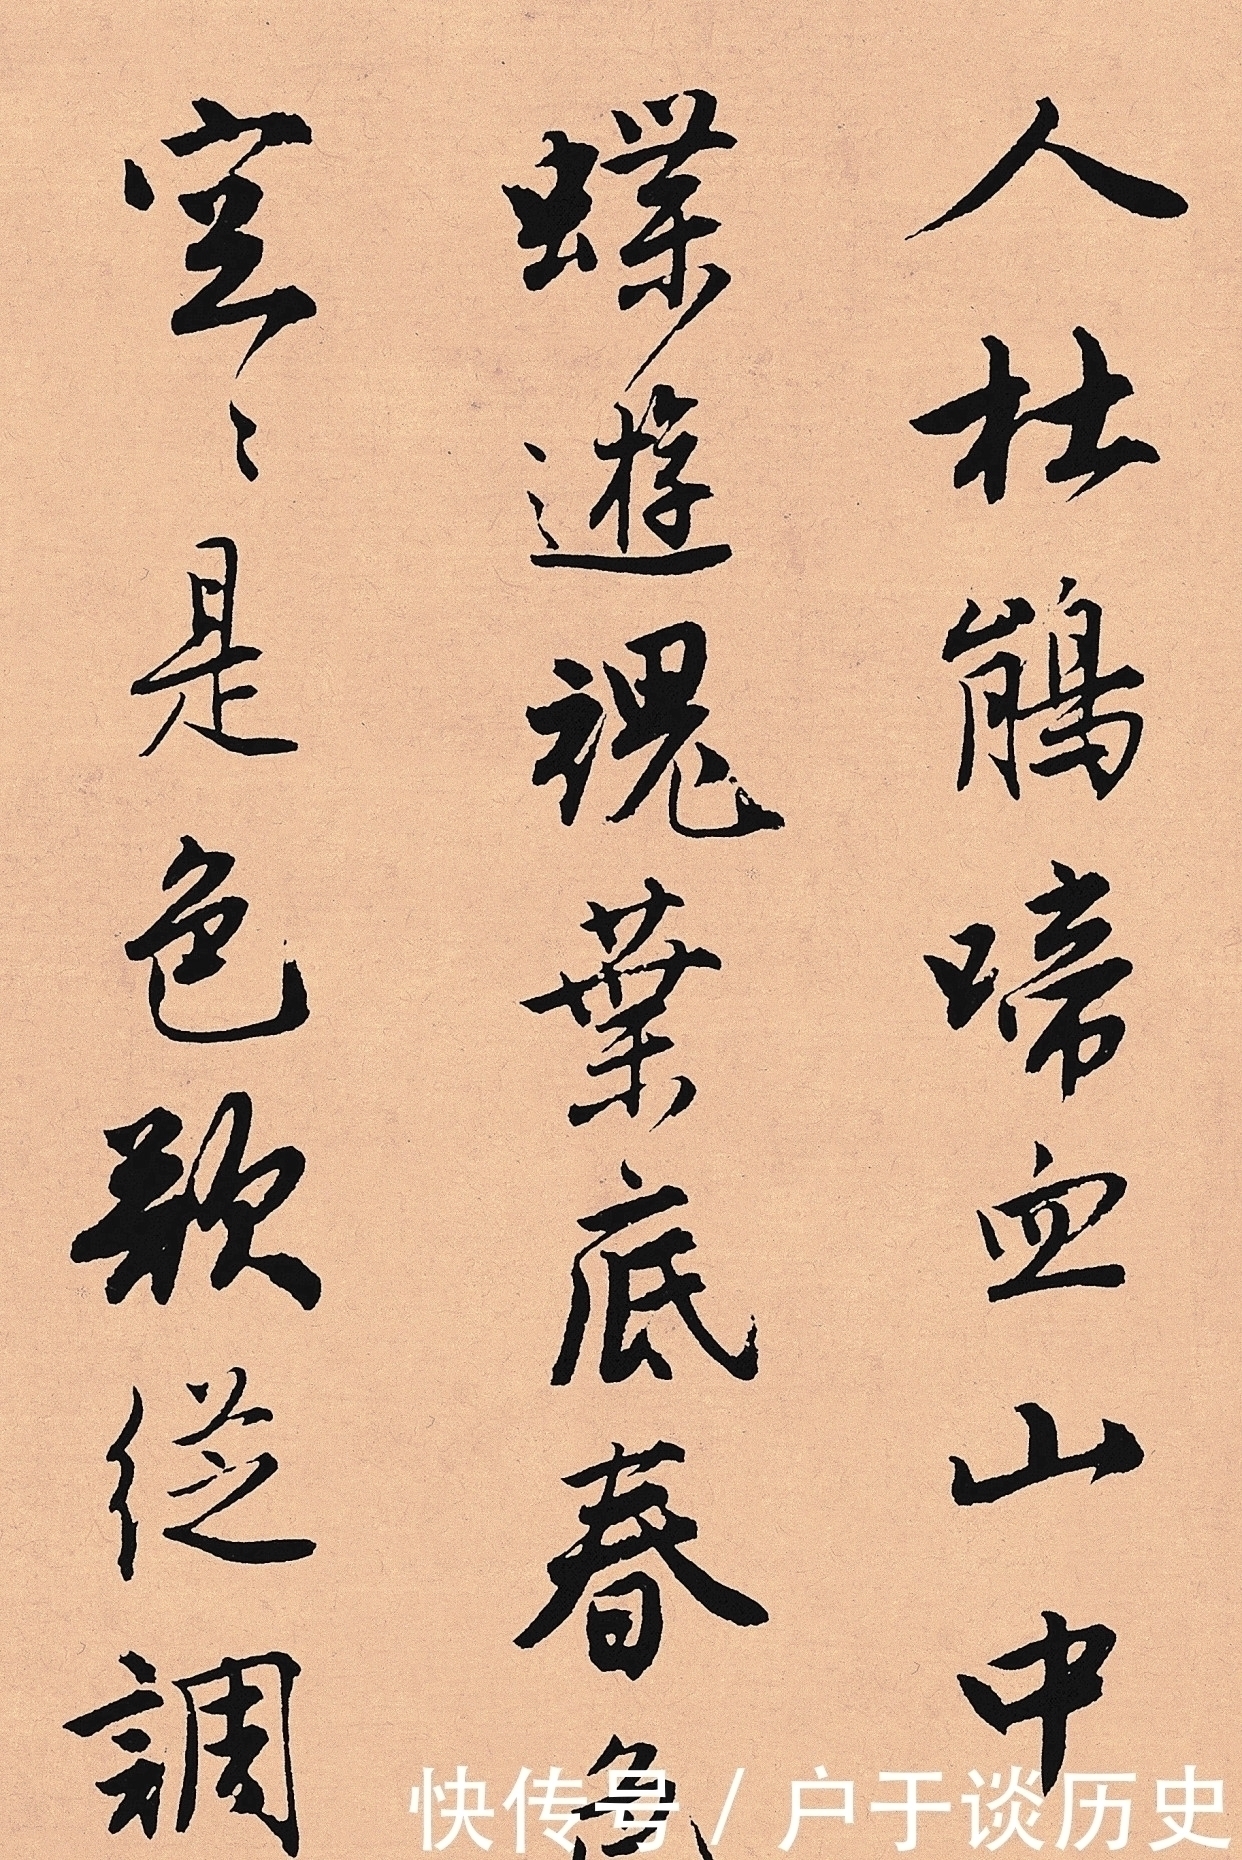 人杜鵑啼血山中
蝶遊魂葉底春色
空〻是色欲從調
快传号 / 户于谈历史